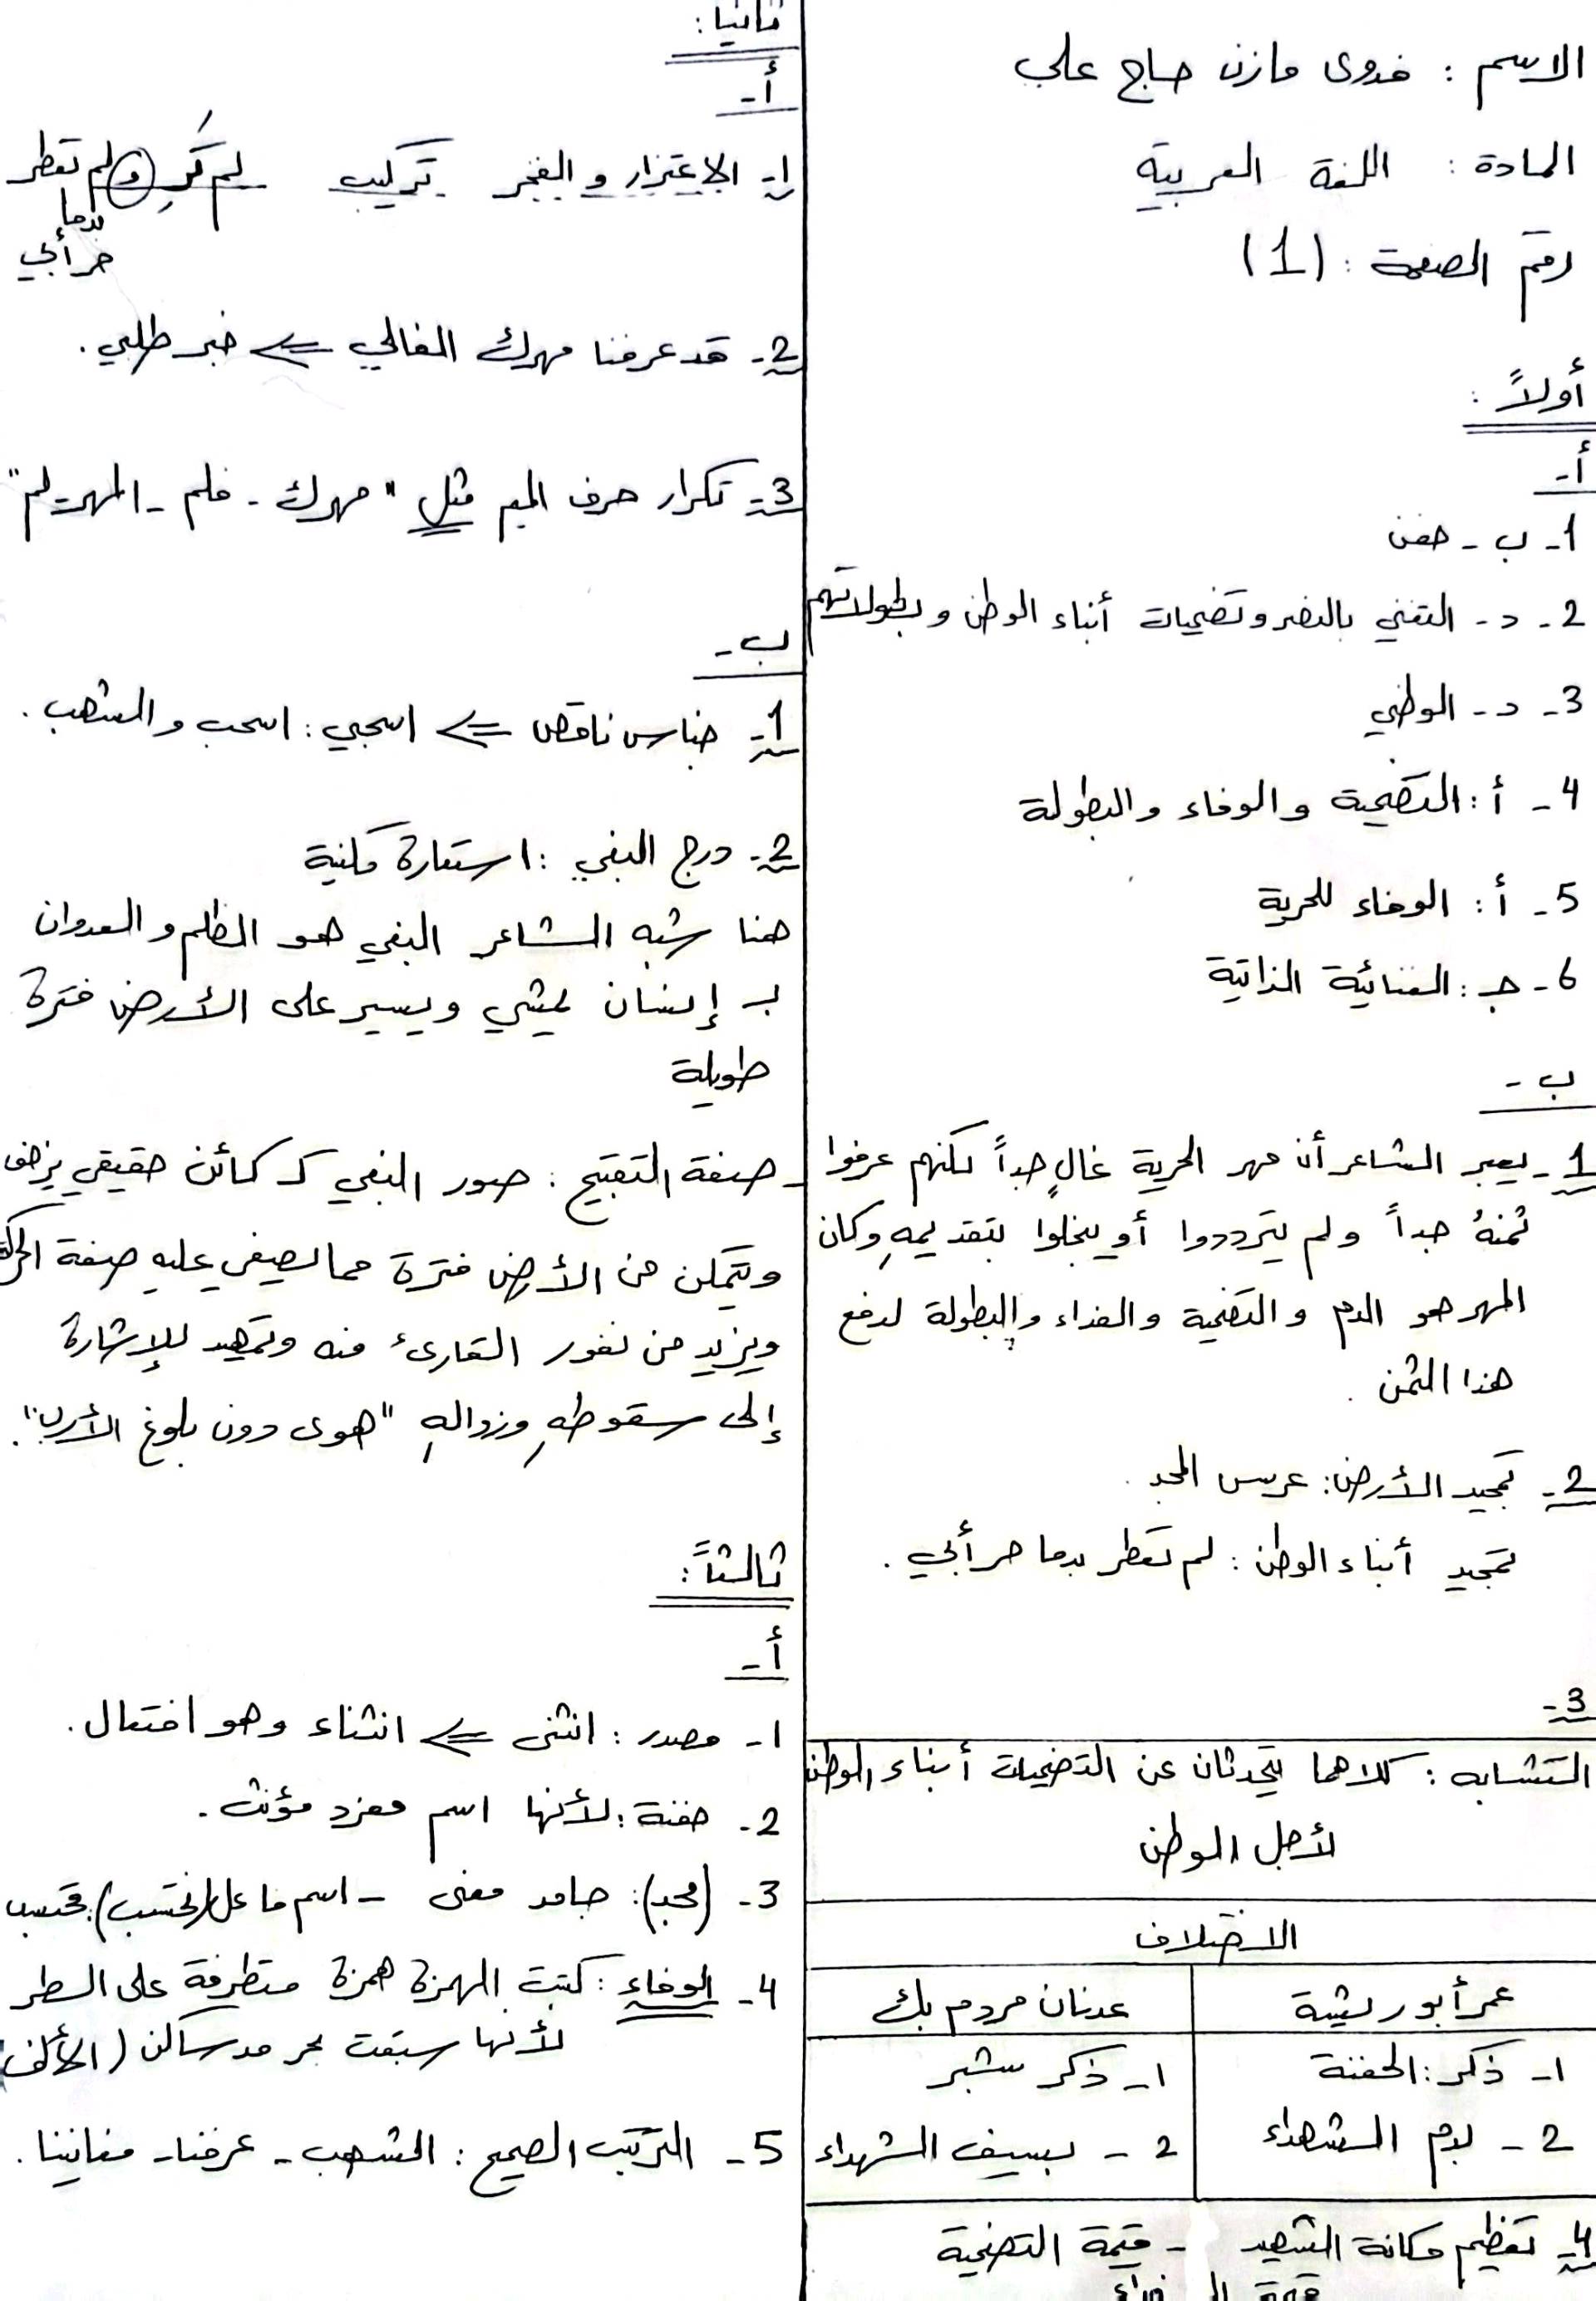 الاسم : فدوى مازن حاج علي
المادة : اللغة العربية
رقم الصفحة : (1)
أولاً :
أ-
1- ب - حفن
2- د- التغني بالنصر وتضحيات أبناء الوطن وبطولاتهم
3- د- الوطني
4- أ: التضحية والوفاء والبطولة
5- أ: الوفاء للحرية
6- جـ: الغنائية الذاتية
ب -
1- يعبر الشاعر أن مهر الحرية غالٍ جداً لكنهم عرفوا
ثمنهُ جداً ولم يترددوا أو يبخلوا بتقديمهِ وكان
المهر هو الدم والتضحية والفداء والبطولة لدفع
هذا الثمن .
2- تمجيد الأرض: عروس المجد .
تمجيد أبناء الوطن : لم تعطر بدما حر أبي .
3-
التشابه : كلاهما يتحدثان عن التضحيات أبناء الوطن
لأجل الوطن
الاختلاف
عمر أبو ريشة
عدنان مردم بك
1- ذكر: الحفنة
1- ذكر شبر
2- بدم الشهداء
2- بسيف الشهداء
4- تعظيم مكانة الشهيد - قيمة التضحية
ثانيا :
أ-
1- الاعتزاز والفخر تركيب لم و لم تعطر
بدما
حر أبي
2- قد عرفنا مهرك الغالي <= خبر طلبي .
3- تكرار حرف الميم مثل " مهرك - فلم - المهر - لم "
ب-
1- جناس ناقص <= اسحبي : اسحب والشهب .
2- درج البغي : استعارة مكنية
هنا شبه الشاعر البغي هو الظلم والعدوان
بـ إنسان يمشي ويسير على الأرض فترة
طويلة
- صفة التقبيح : صور البغي كـ كائن حقيقي يزحف
ويتمكن من الأرض فترة مما يضفي عليهِ صفة الحركة
ويزيد من نفور القارئ منه وتمهيد للإشارة
إلى سقوطهِ وزوالهِ "هوى دون بلوغ الأرب".
ثالثاً :
أ-
1- مصدر : انثنى <= انثناء وهو افتعال .
2- حفنة : لأنها اسم مفرد مؤنث .
3- (مجد): جامد معنى - اسم فاعل (نحتسب): محتسب
4- الوفاء : كتبت الهمزة همزة متطرفة على السطر
لأنها سبقت بحر مد ساكن (الألف)
5- الترتيب الصحيح : الشهب - عرفنا - مغانينا .